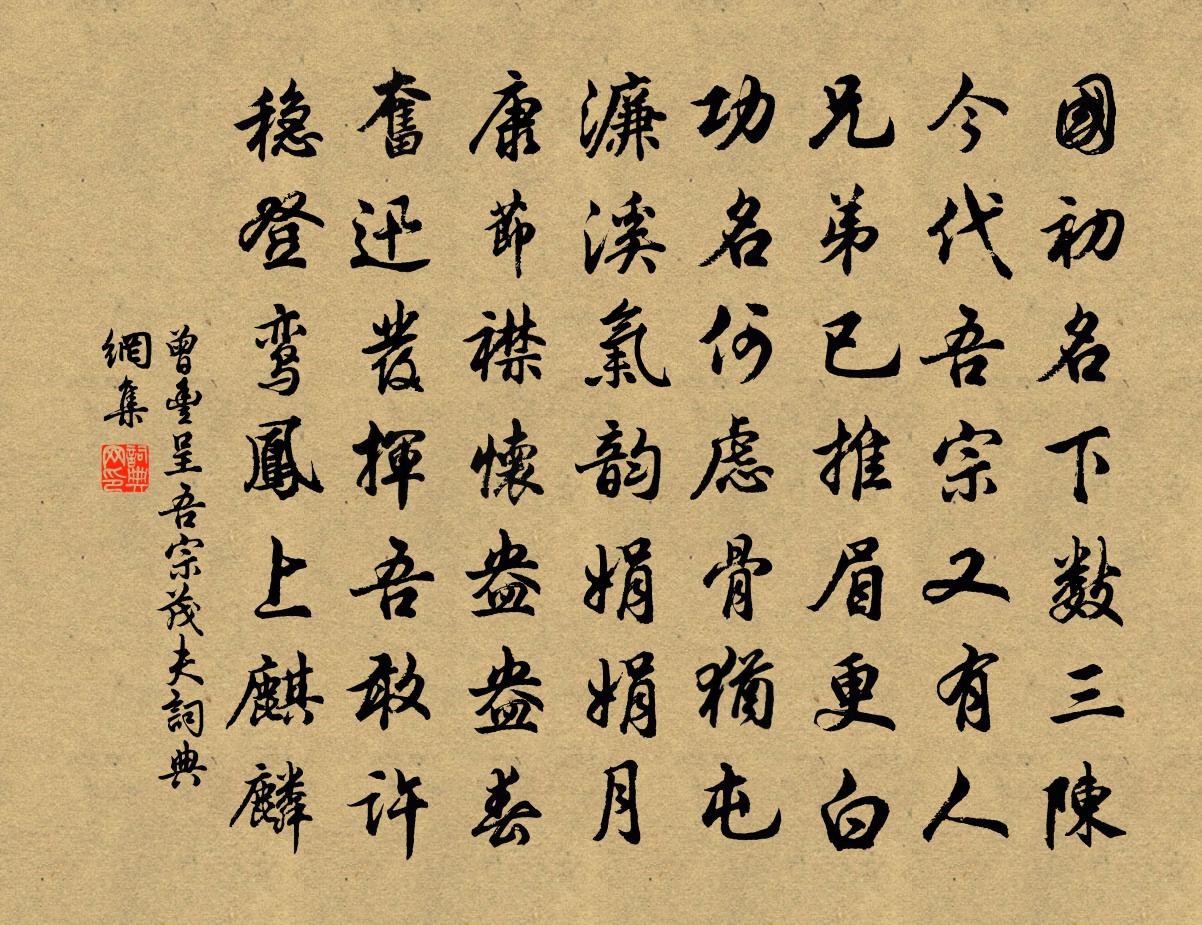 國初名下數三陳
今代吾宗又有人
兄弟已推眉更白
功名何慮骨猶屯
濂溪氣韵娟娟月
康節襟懷盎盎春
奮迅發揮吾敢許
穏登鸾鳳上麒麟
曾豊呈吾宗茂夫詞典
網集
詞典網印